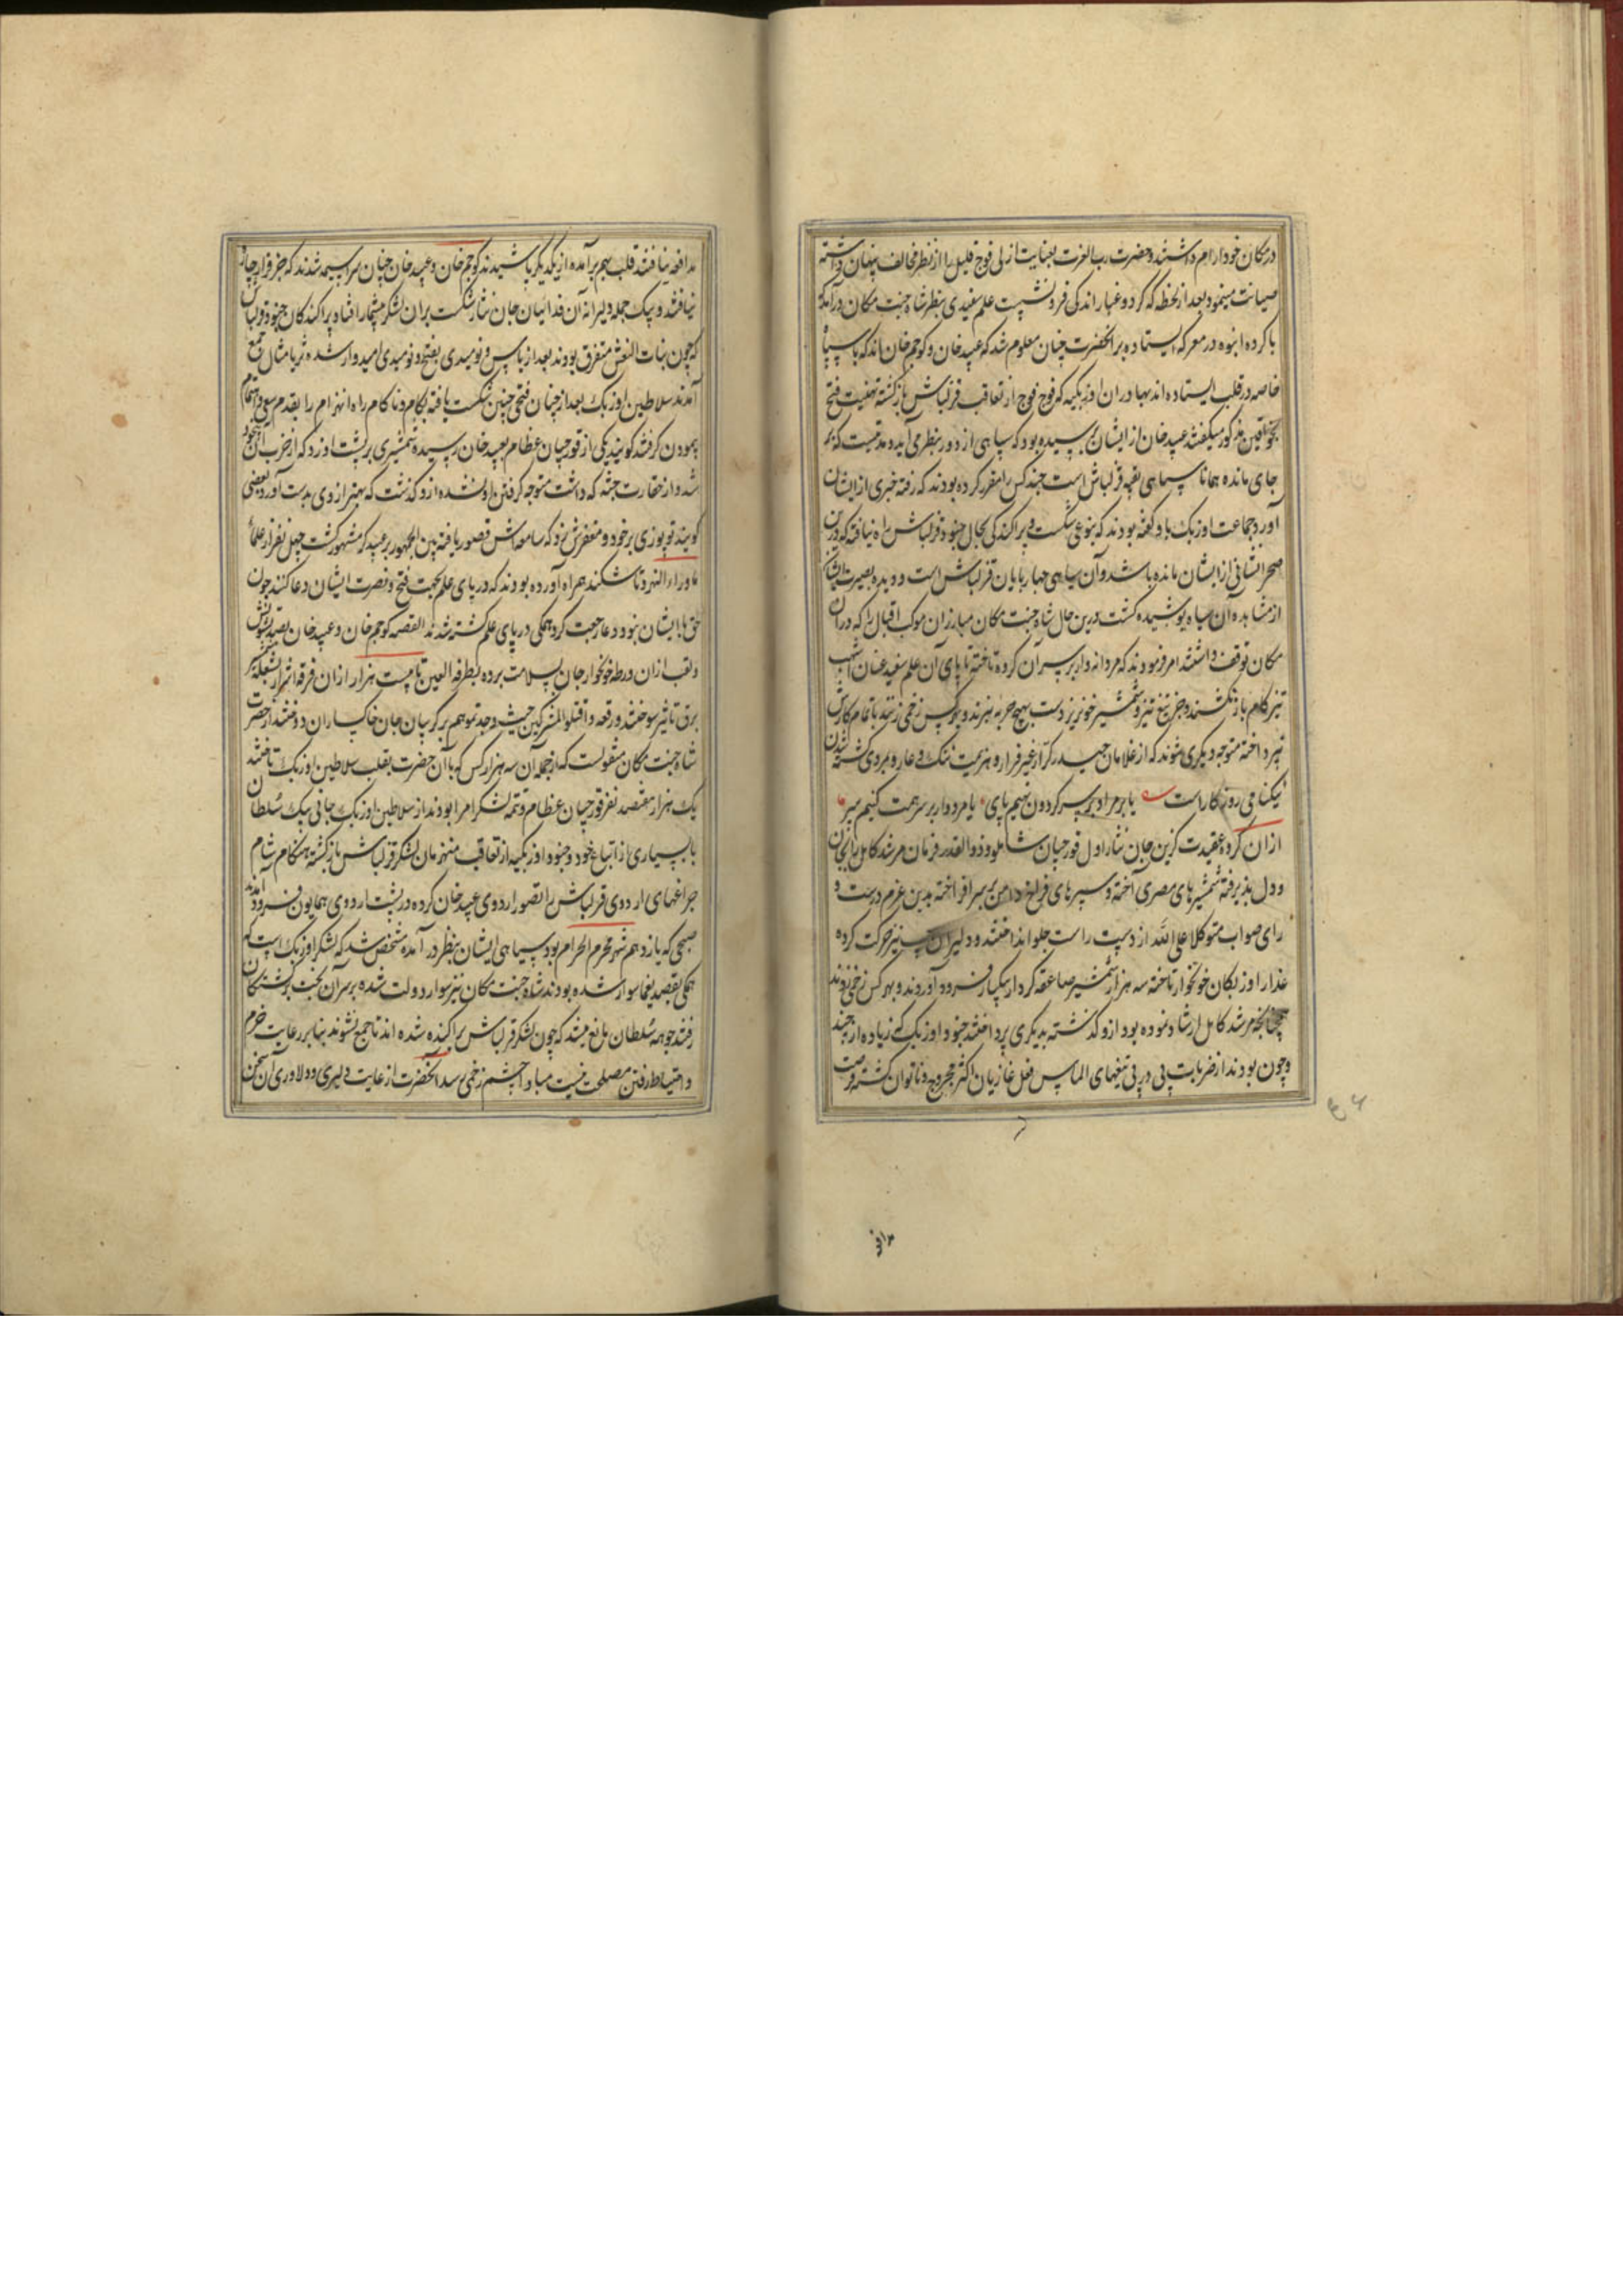 در مکان خود آرام داشتند و حضرت رب العزت بعنایت ازلی فوج قلیل را از نظر مخالف پنهان داشته
صیانت مینمود بعد از لحظه که گرد و غبار اندکی فرو نشست علم سفیدی بنظر شاه جنت مکان درآمد که
با کروه انبوه در معرکه ایستاده بر آنحضرت چنان معلوم شد که عبید خان و کوجم خان اند که با سپاه
خاصه در قلب ایستاده اند بهادران اوزبکیه که فوج فوج از تعاقب قزلباش بازگشته تهنیت فتح
بخواقین مذکور میگفتند عبید خان از ایشان پرسیده بود که سیاهی از دور بنظر می آید و مدتیست که بر
جای مانده همانا سیاهی بقیه قزلباش است چند کس را مقرر کرده بودند که رفته خبری از ایشان
آورد جماعت اوزبک باو گفته بودند که بنوعی شکست و پراکندگی بحال جنود قزلباش راه نیافته که درین
صحرا نشانی از ایشان مانده باشد و آن سیاهی چهارپایان قزلباش است و دیده بصیرت ایشان
از مشاهده آن سپاه پوشیده گشت درین حال شاه جنت مکان مبارزان موکب اقبال را که در آن
مکان توقف داشتند امر فرمودند که مردانه وار بر سر آن کروه تاخته تا پای آن علم سفید عنان اشهب
تیز کام باز نکشند و جز تیغ تیز و شمشیر خونریز دست بهیچ حربه نبرند و بهر کس زخمی زنند باتمام کارش
نپرداخته متوجه دیگری شوند که از غلامان حیدر کرار غیر فرار و هزیمت ننگ و عار و بروی شستن
نیکنامی روزگار است یا بر مراد بر سر گردون نهیم پای یا مردوار بر سر همت کنیم سر
از ان کروه عقیدت گزین جان نثار اول قورچیان شاملو و ذوالقدر فرمان مرشد کامل را بجان
و دل پذیرفته شمشیرهای مصری آخته و سپرهای فراخ دامن بر سر افراخته بدین عزم درست و
رای صواب متوکلا علی الله از دست راست جلو انداختند و دلیران نیز حرکت کرده
غدار اوزبکان خونخوار تاخته سه هزار شمشیر صاعقه کردار بیکبار فرود آوردند و بهر کس زخمی زدند
چنانچه مرشد کامل ارشاد نموده بود ازو گذشته بدیگری پرداختند جنود اوزبک که زیاده از چند
و چون بودند از ضربات پی در پی تیغهای الماس فعل غازیان اکثر مجروح و ناتوان گشته فرصت
مدافع
مدافعه نیافتند قلب بهم برآمده از یکدیگر پاشیدند کوجم خان و عبید خان چنان سراسیمه شدند که جز فرار چاره
نیافتند و بیک حمله دلیرانه آن فدائیان جان نثار شکست بران لشکر بیشمار افتاد پراکندگان جنود قزلباش
که چون بنات النعش متفرق بودند بعد از یاس و نومیدی بفتح و نومیدی امیدوار شده ثریا مثال جمع
آمدند سلاطین اوزبک بعد از چنان فتحی چنین شکست یافته بکام و ناکام راه انهزام را بقدم سعی و اهتمام
پیمودن گرفتند گویند یکی از قورچیان عظام بعبید خان رسیده شمشیری بر پشت او زد که از ضرب آن بیخود
شد و از حقارت جثه که داشت متوجه گرفتن او نشده ازو گذشت که بهتر از وی بدست آورد بعضی
گویند توپوزی بر خود و مغفرش زد که سامعه اش قصور یافته بین الجمهور بعبید کر مشهور گشت چهل نفر از علماء
ماوراء النهر و تاشکند همراه آورده بودند که در پای علم بجهت فتح و نصرت ایشان دعا کنند چون
حق با ایشان نبود دعا رجعت کرد همگی در پای علم کشته شدند القصه کوجم خان و عبید خان بصد تشویش
و تعب از ان ورطه خونخوار جان بسلامت برده بطرفة العین تا بیست هزار از ان فرقه اشرار بشعله تیغ
برق تاثیر سوختند و رقعه و اقتلوا المشرکین حیث وجدتموهم بر گریبان جان خاکساران دوختند از حضرت
شاه جنت مکان منقولست که از جمله آن سه هزار کس که با آن حضرت بقلب سلاطین اوزبک تاختند
یک هزار و هفتصد نفر قورچیان عظام و تتمه لشکر امرا بودند از سلاطین اوزبک جانی بیک سلطان
با بسیاری از اتباع خود و جنود اوزبکیه از تعاقب منهزمان لشکر قزلباش بازگشته هنگام شام
چراغهای اردوی قزلباش را تصور اردوی عبید خان کرده در پشت اردوی همایون فرود آمدند
صبحی که یازدهم شهر محرم الحرام بود سیاهی ایشان بنظر درآمده مشخص شد که لشکر اوزبک است که
همگی بقصد یغما سوار شده بودند شاه جنت مکان نیز سوار دولت شده بر سر آن بخت برگشتگان
رفتند جوهه سلطان مانع میشد که چون لشکر قزلباش پراکنده شده اند تا جمع نشوند بنابر رعایت حزم
و احتیاط رفتن مصلحت نیست مبادا چشم زخمی رسد آنحضرت از غایت دلیری و دلاوری آن سخن